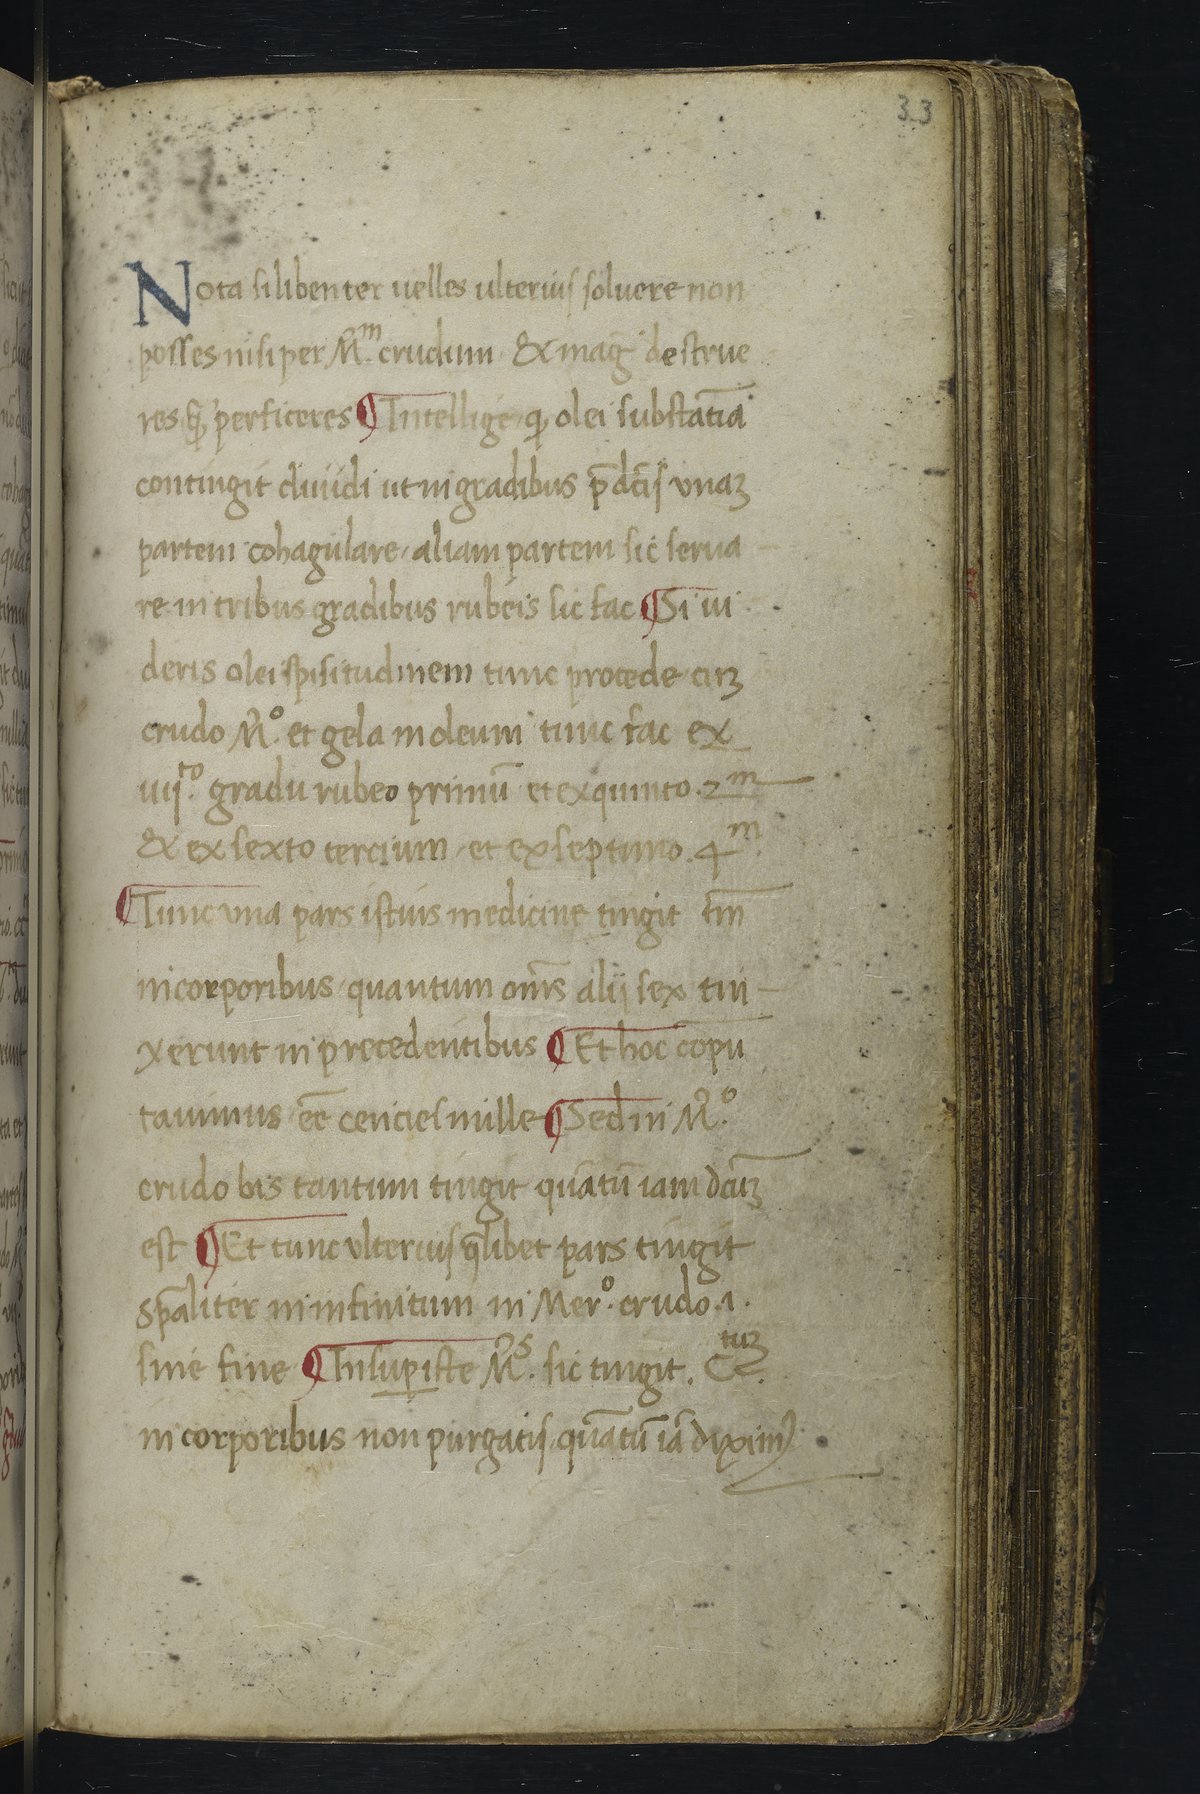 33
Nota si libenter uelles ulterius soluere non
posses nisi per M̃.ᵐ crudum & mag̃ destrue
res q̃ perficeres ¶ Intellige q̨ olei substãtia
contingit diuidi ut in gradibus p̃dc̃is unaꝫ
partem cohagulare aliam partem sic serua
re in tribus gradibus rubeis sic fac ¶ Si ui
deris olei spisitudinem tunc procede cuꝫ
crudo M̃.º et gela in oleum tunc fac ex
uij.ᵗᵒ gradu rubeo primũ et ex quinto .2ᵐ
& ex sexto tercium et ex septimo .4ᵐ
¶ Tunc una pars istius medicine tingit tm̃
in corporibus quantum om̃s alij sex tin
xerunt in precedentibus ¶ Et hoc copu
tauimus eẽ cencies mille ¶ Sed in M̃.º
crudo bis tantum tingit quãtũ iam dc̃uꝫ
est ¶ Et tunc ulterius q̃libet pars tingit
Sp̃aliter in infinitum in Mer.º crudo .i.
sine fine ¶ Insuꝑ iste M̃.ˢ sic tingit.
in corporibus non purgatis quãtũ iã diximꝰ